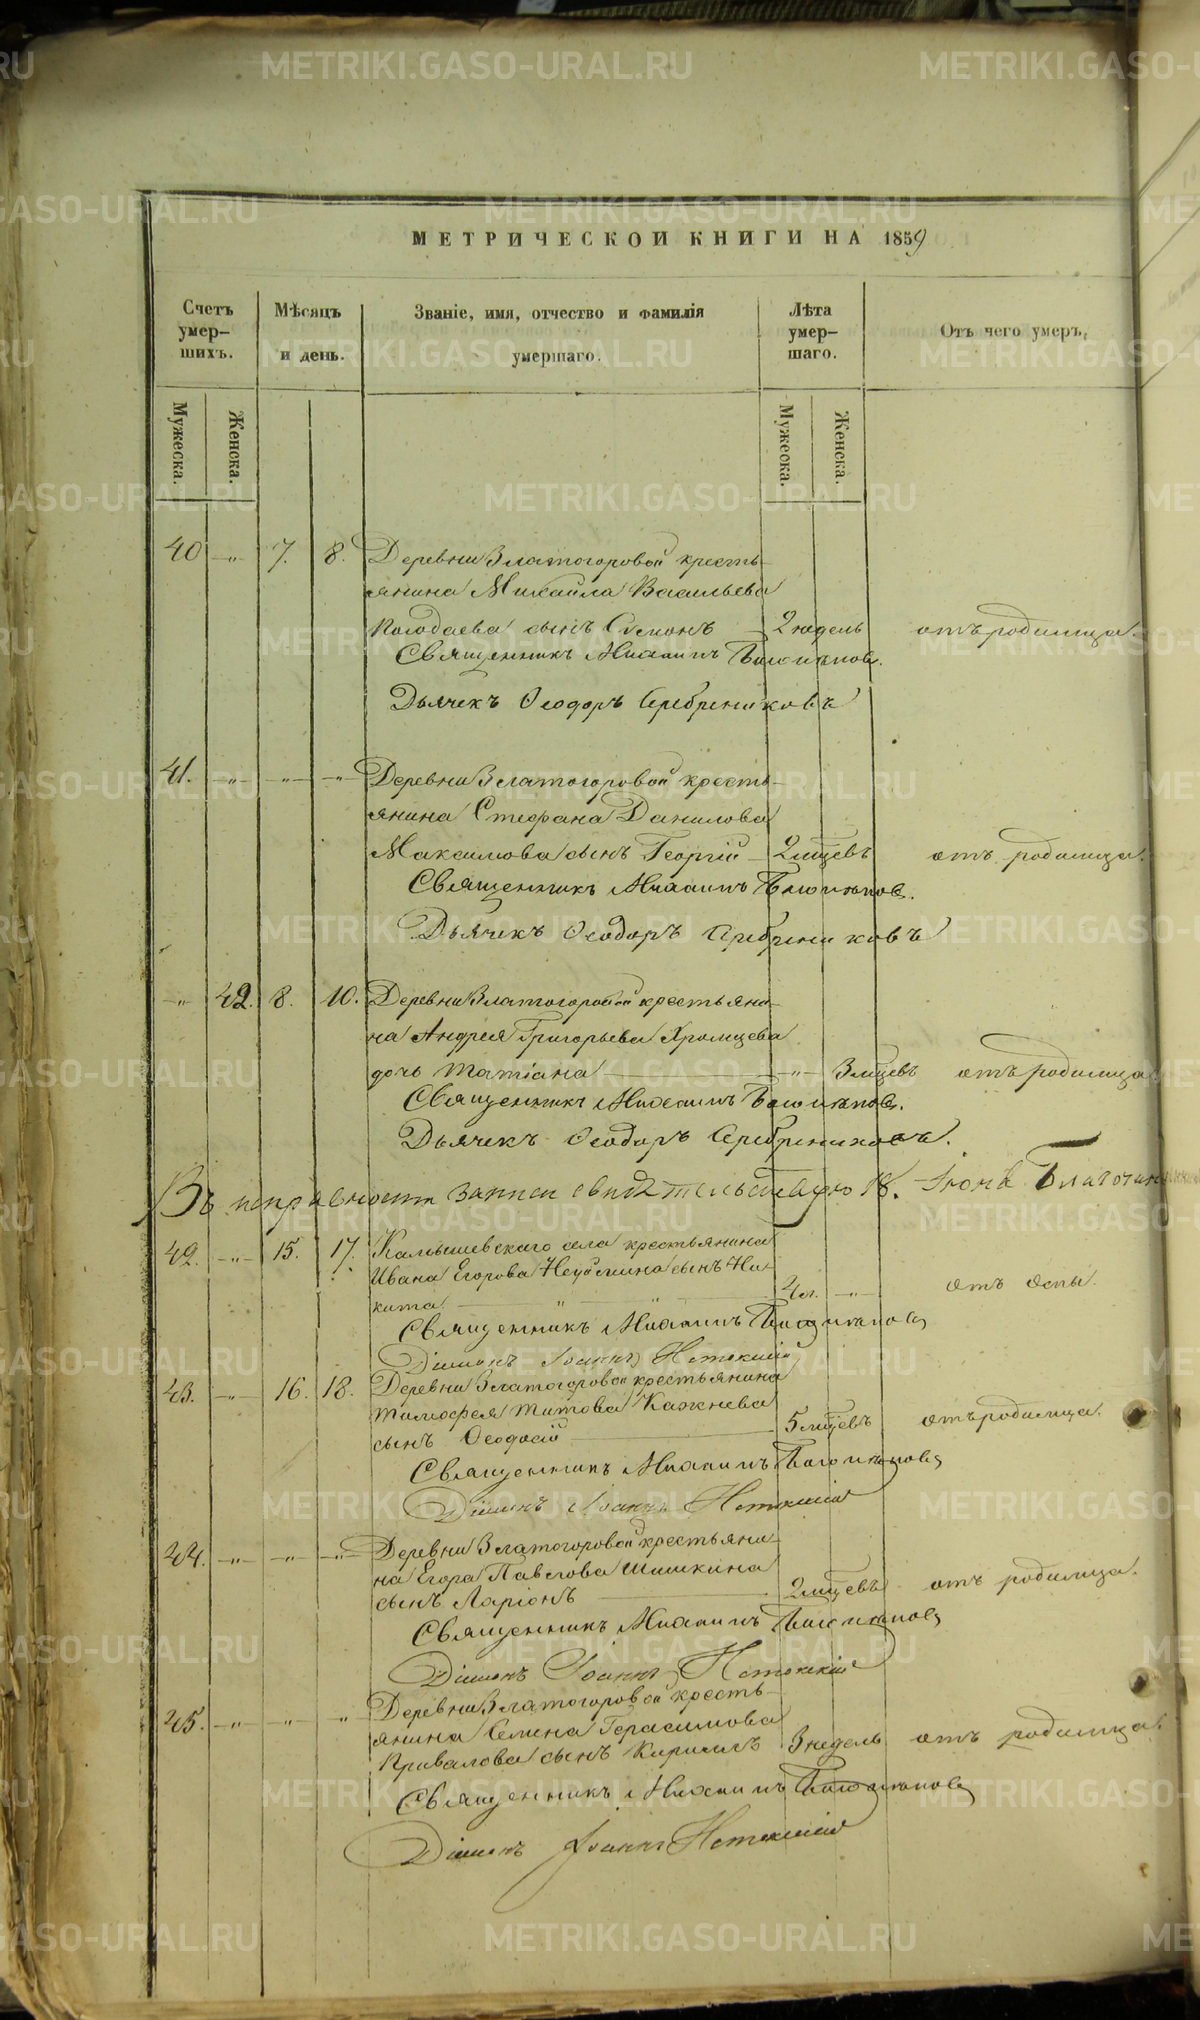 МЕТРИЧЕСКОЙ КНИГИ НА 1859
Счетъ умер-шихъ.
Мѣсяцъ и день.
Званіе, имя, отчество и фамилія умершаго.
Лѣта умер-шаго.
Отъ чего умеръ.
Мужеска. Женска.
Мужеска. Женска.
40 -„- 7. 8. Деревни Златогоровой кресть-
янина Михайла Васильева
Колодаева сынъ Симонъ 2 недель отъ родимца
Священникъ Михаилъ
Дьячекъ Ѳеодоръ Серебрениковъ
41. -„- -„- -„- Деревни Златогоровой кресть-
янина Стефана Данилова
Максимова сынъ Георгій 2 мцевъ отъ родимца.
Священникъ Михаилъ
Дьячекъ Ѳеодоръ Серебрениковъ
-„- 42. 8. 10. Деревни Златогоровой крестьяни-
на Андрея Григорьева Хромцева
дочь Татіана -„- 3 мцевъ отъ родимца
Священникъ Михаилъ
Дьячекъ Ѳеодоръ Серебрениковъ.
Въ исправности записи свидѣтельствую 18. Іюня Благочин
42. -„- 15. 17. Камышевскаго села крестьянина
Ивана Егорова сынъ Ни-
кита 4 л. -„- отъ оспы.
Священникъ Михаилъ
Діаконъ Іоаннъ
43. -„- 16. 18. Деревни Златогоровой крестьянина
Тимофея Титова
сынъ Ѳеодосій 5 мцевъ отъ родимца.
Священникъ Михаилъ
Діаконъ Іоаннъ
44. -„- -„- -„- Деревни Златогоровой крестьяни-
на Егора Павлова Шишкина
сынъ Ларіонъ 2 мцевъ отъ родимца.
Священникъ Михаилъ
Діаконъ Іоаннъ
45. -„- „ „ Деревни Златогоровой кресть-
янина Семена Герасимова
Привалова сынъ Кирилъ 3 недель отъ родимца.
Священникъ Михаилъ
Діаконъ Іоаннъ
METRIKI.GASO-URAL.RU